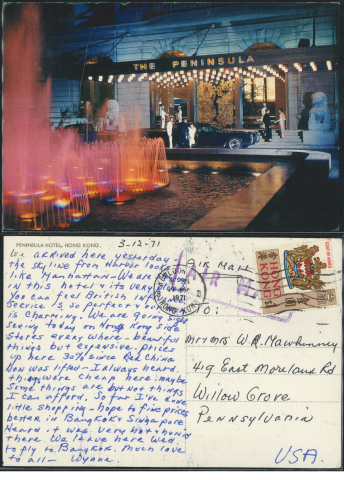 THE PENINSULA
PENINSULA HOTEL, HONG KONG.
3-12-71
We arrived here yesterday -
the skyline from Harbor looks
like Manhattan - We are
in this hotel & its very
You can feel British inf
Service is so perfect & ou
is charming. We are going sight
seeing today on Hong Kong side
Stores every where - beautiful
things but expensive. Prices
up here 30% since Red China
Ban was lifted - I always heard
things were cheap here; maybe
Some things are but not things
I can afford. So far I've done
little shopping - hope to find prices
better in Bangkok & Singapore
Heard it was very hot & humid
there. We leave here Wed.
to fly to Bangkok. Much love
to all -
AIR MAIL
AIR MAIL
1971
HONG KONG
HONG KONG
TO:
Mr & Mrs W. R. Mawhinney
419 East Moreland Rd
Willow Grove
Pennsylvania
USA.